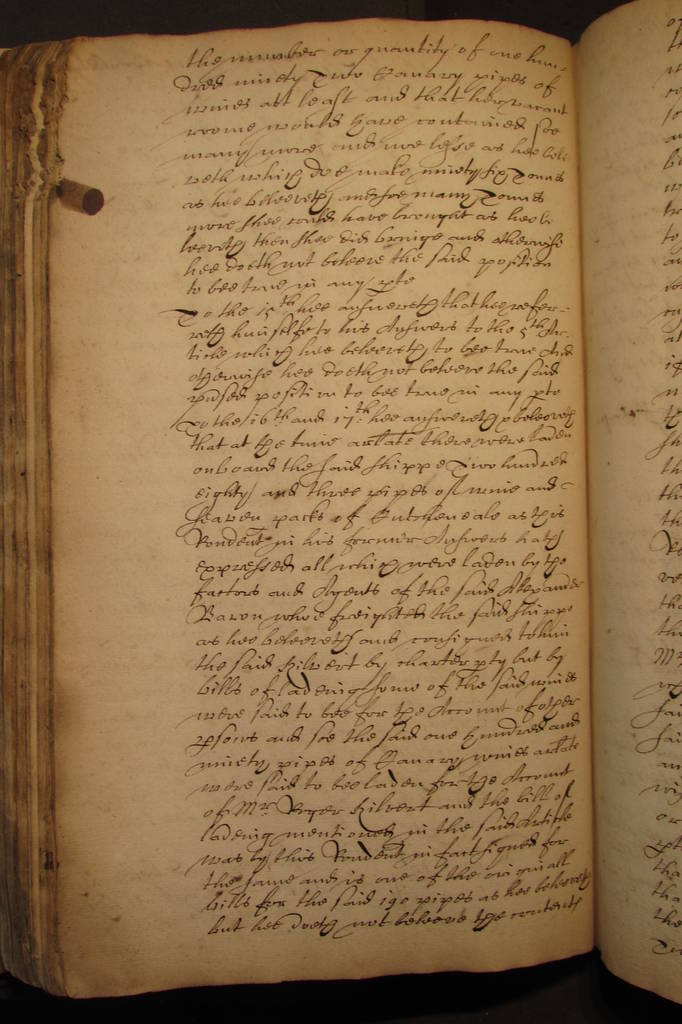 the number or quantity of one hun-
dred ninety Two Canary pipes of
wines att least and that her vacant
roome would have contained soe
many more and noe lesse as hee belee
veth which doe make ninety six Tonnes
as hee beleeveth and soe many Tonnes
more shee could have brought as hee be
leeveth then shee did bringe and otherwise
hee doeth not beleeve the said position
to bee true in any pte
To the 15th hee answereth that hee refer-
reth himselfe to his Answers to the 5th Ar-
ticle which hee beleeveth to bee true And
otherwise hee doeth not beleeve the said
position to bee true in any pte
To the 16th and 17th hee answereth & beleeveth
that at the time arlate there were laden
on board the said shippe Two hundred
eighty and three pipes of wine and
seaven packs of as this
Rondent in his former Answers hath
expressed all which were laden by the
factors and Agents of the said Alexander
Baron whoe freighted the said shippe
as hee beleeveth and consigned to him
the said Kilvert by charter pty but by
bills of ladeing some of the said wines
were said to bee for the Account of other
psons and soe the said one hundred and
ninety pipes of Canary wines arlate
were said to bee laden for the Account
of Mr Roger Kilvert and the bill of
ladeing mentioned in the said Article
was by this Rondent in fact signed for
the same and is one of the originall
bills for the said 190 pipes as hee beleeveth
but hee doeth not beleeve the contents